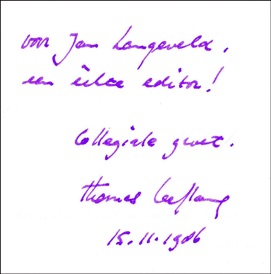 voor Jan Langeveld,
een echte editor!
Collegiale groet.
Thomas Leeflang
15.11.1986